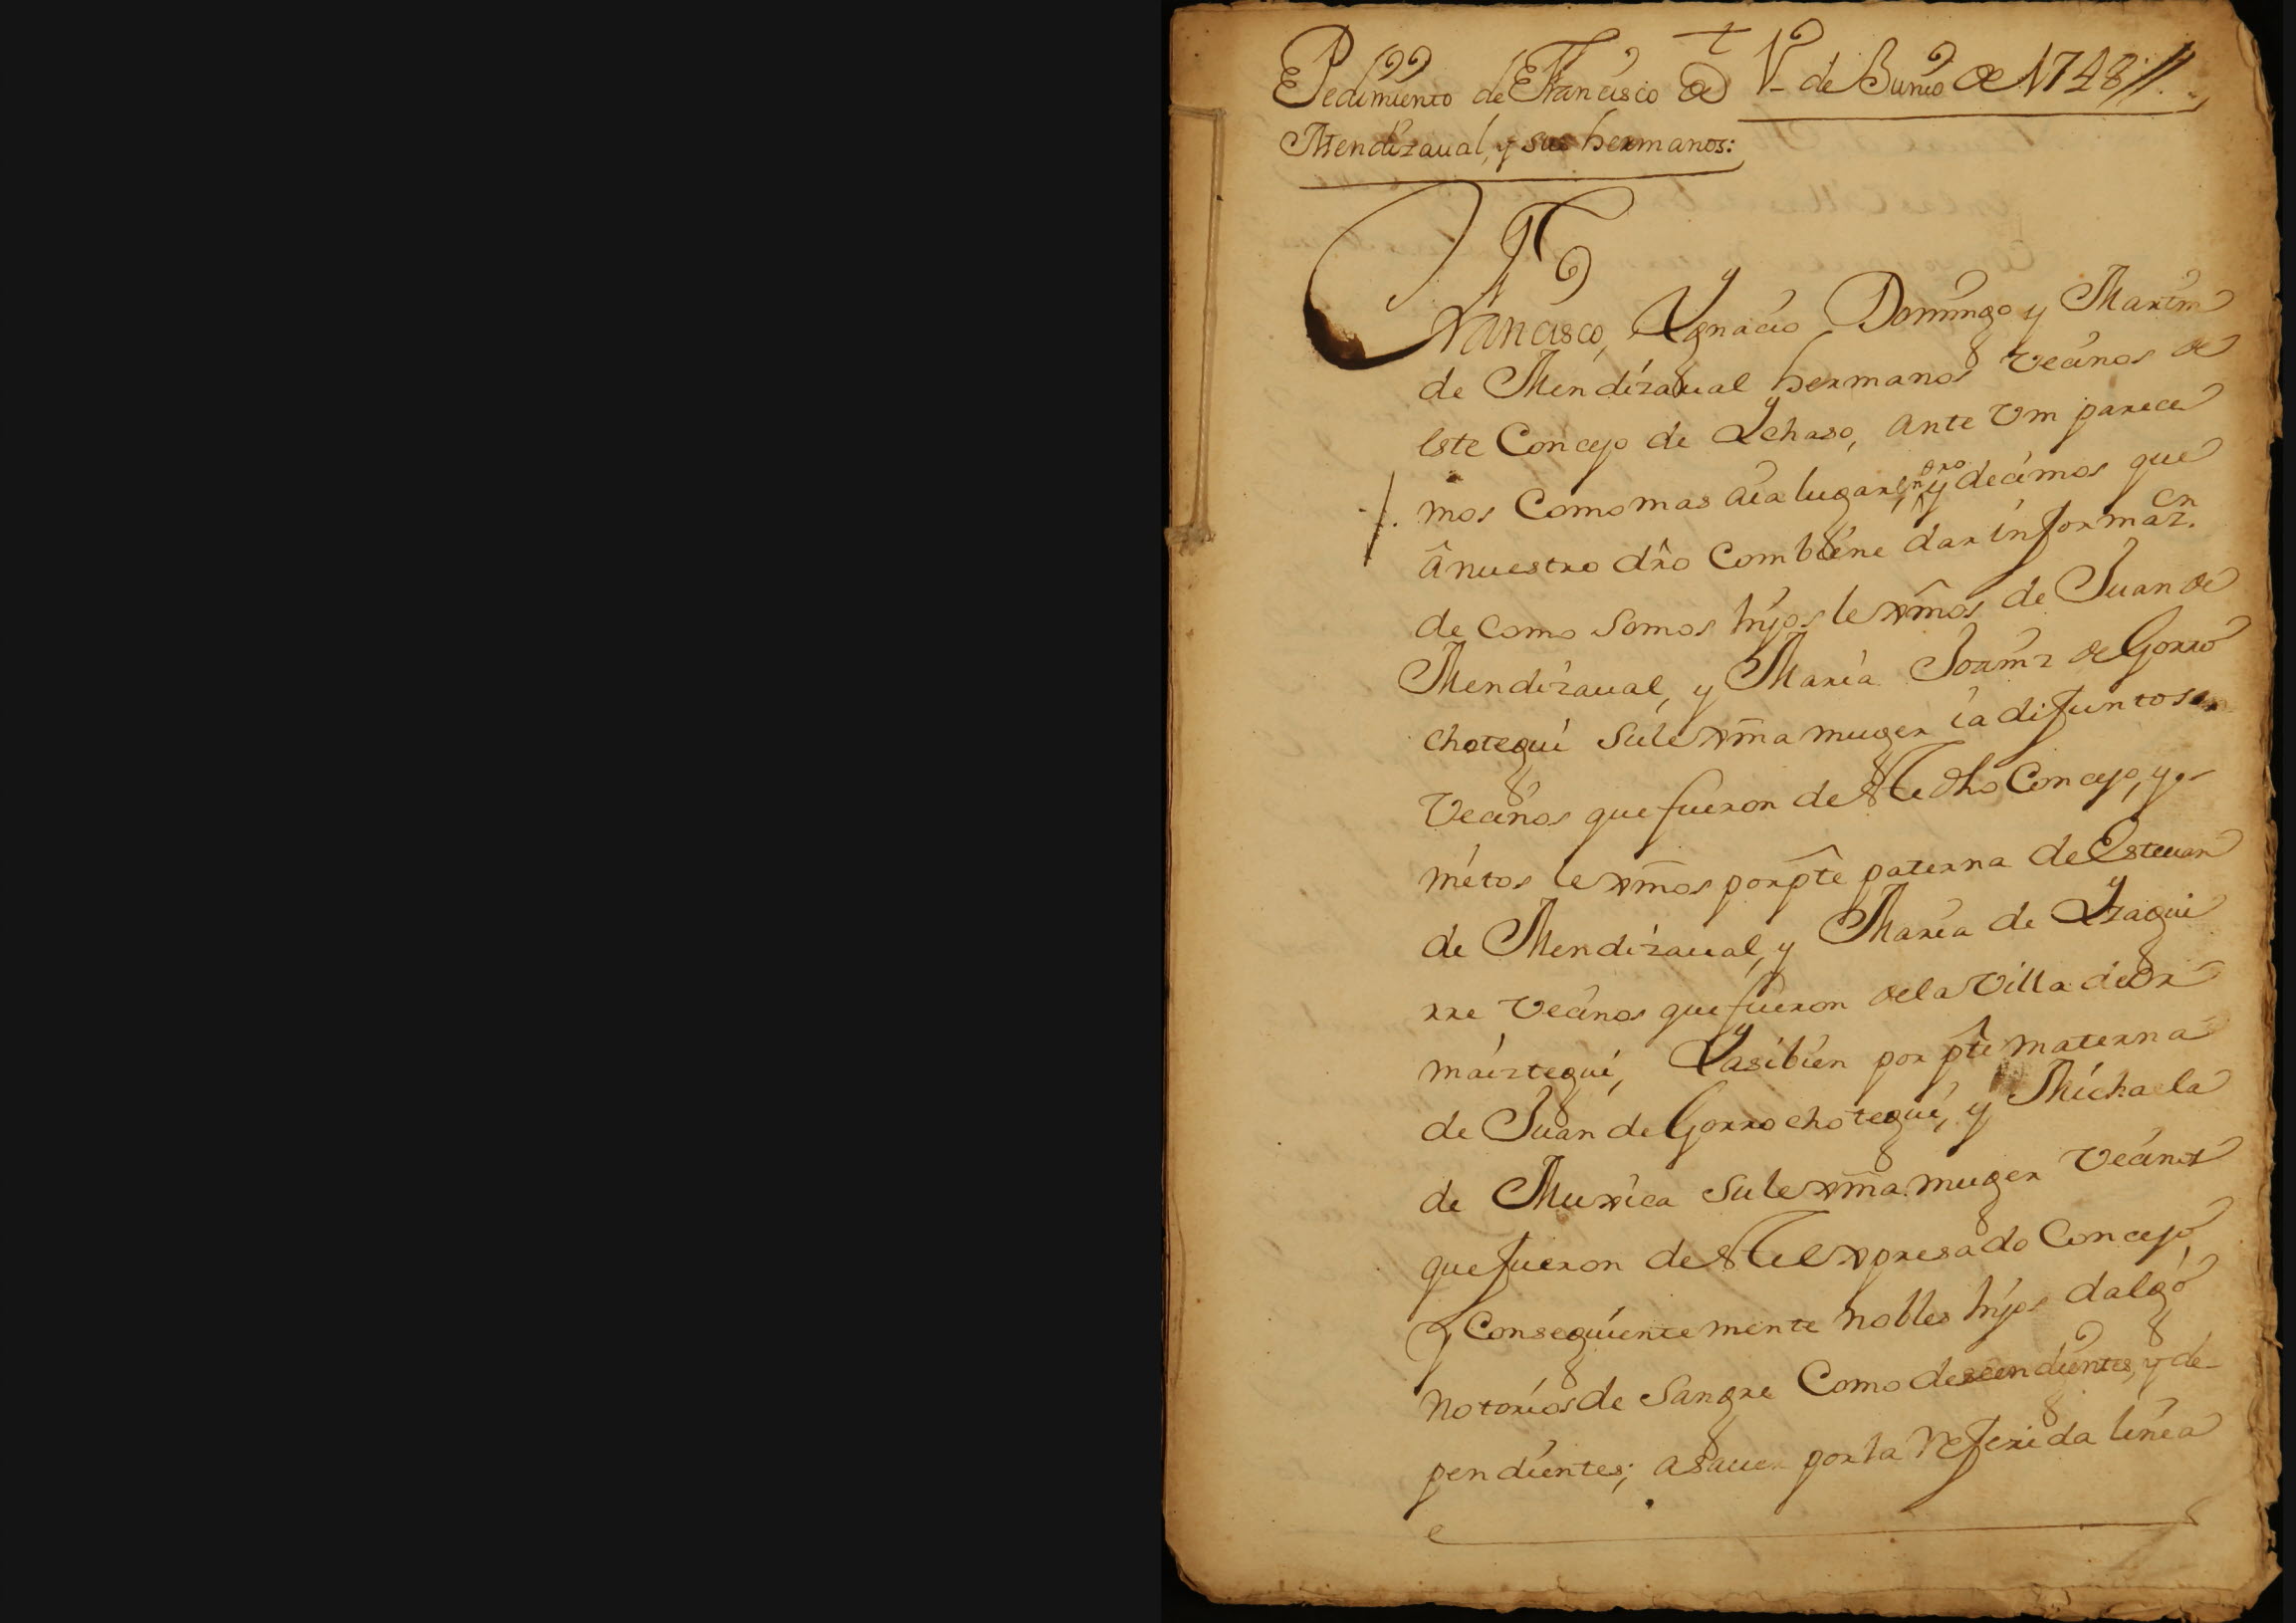 Pedimiento de Francisco de
Mendizaual, y sus hermanos:
V de Junio de 1748//.
Francisco, Ygnacio Domingo y Martin
de Mendizaual hermanos vecinos de
este Concejo de Ychaso, ante Vm parece
mos Como mas aia lugar en dro y decimos que
â nuestro dr̂o Combiene dar informaz.on
de como somos hijos lexmôs de Juan de
Mendizaual, y Maria de Gorro
chotegui su lexm̄a muger ia difuntos
Vecinos que fueron de este dho Concejo, y
nietos lexm̄os por pt̂e paterna de Esteuan
de Mendizaual, y Maria de Yzagui
rre vecinos que fueron de la Villa de Or
maiztegui, Y asibien por pt̂e materna
de Juan de Gorrochotegui, y Michaela
de Muxica su lexm̄a muger vecinos
que fueron de este expresado Concejo
Y Conseguientemente nobles hijos dalgo
notorios de Sangre Como descendientes, y de-
pendientes; asauer por la referida linea